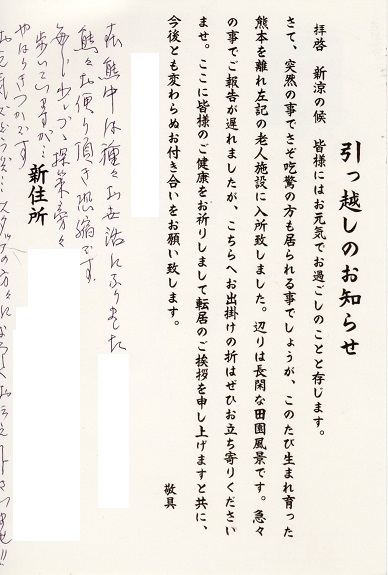 引っ越しのお知らせ
拝啓　新涼の候　皆様にはお元気でお過ごしのことと存じます。
さて、突然の事でさぞ吃驚の方も居られる事でしょうが、このたび生まれ育った
熊本を離れ左記の老人施設に入所致しました。辺りは長閑な田園風景です。急々
の事でご報告が遅れましたが、こちらへお出掛けの折はぜひお立ち寄りください
ませ。ここに皆様のご健康をお祈りしまして転居のご挨拶を申し上げますと共に、
今後とも変わらぬお付き合いをお願い致します。
敬具
在熊中は種々お世話になりました
熊々お便り頂き恐縮です。
毎日少しづつ探策旁々
歩いていますが…
新住所
やはりきついです
お元気でどうぞ… スタッフの方々に